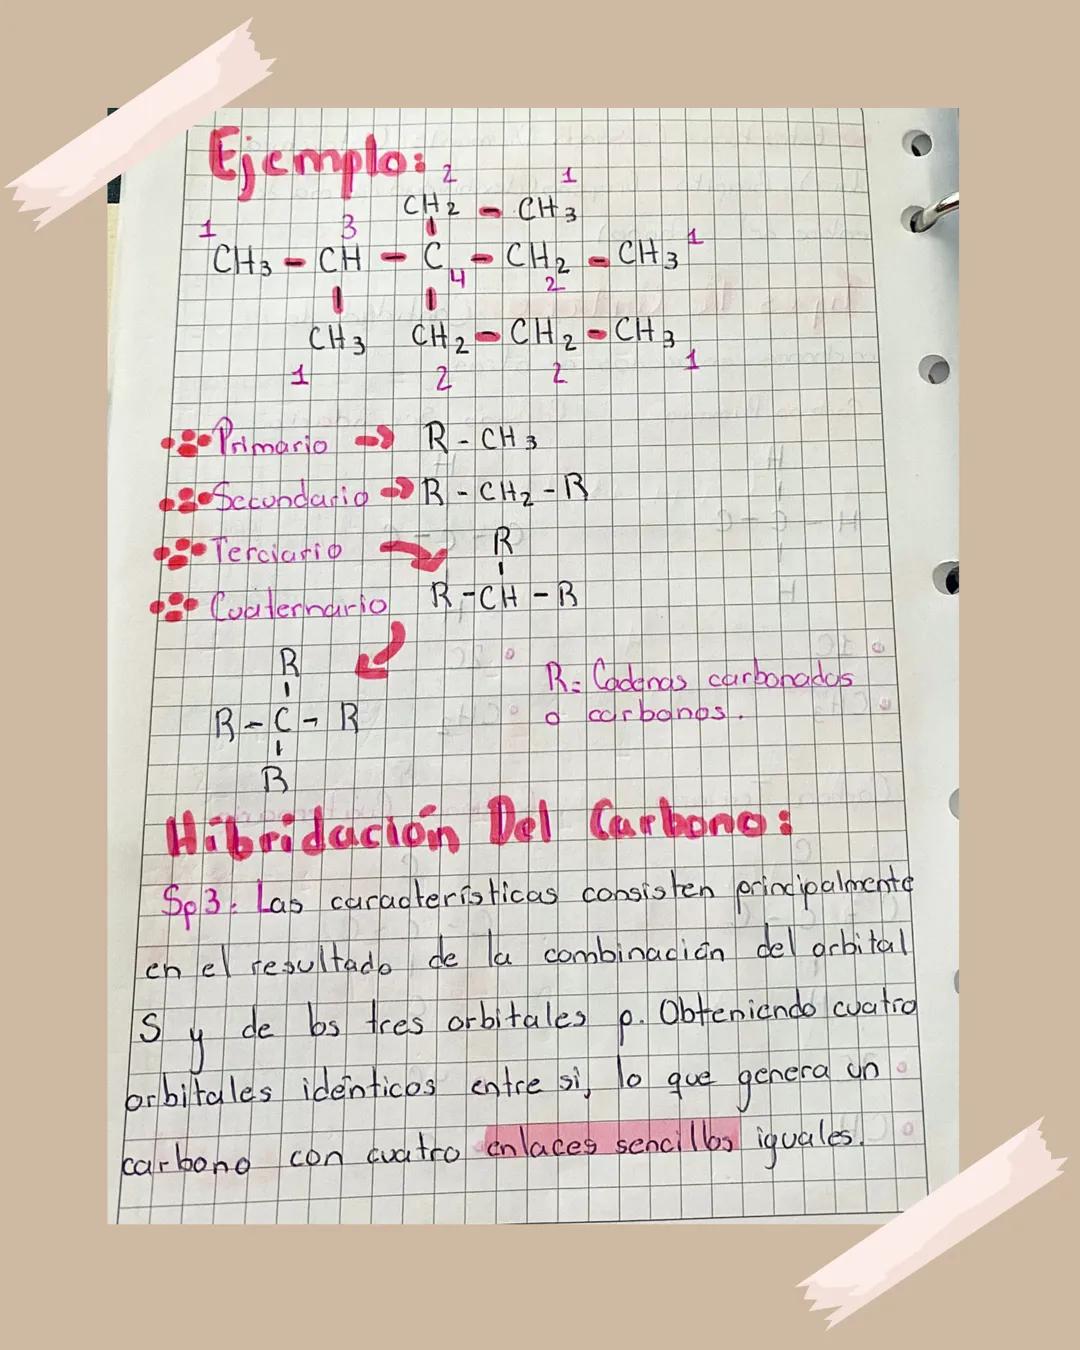 Ejemplo:
2 1
CH2 - CH3
1 3
CH3 - CH - C - CH2 - CH3 1
4 2
CH3 CH2 - CH2 - CH3
1 2 2 1
Primario → R - CH3
Secundario → R - CH2 - R
Terciario R
R - CH - R
Cuaternario
R
R - C - R
R
R= Cadenas carbonadas
o carbonos.
Hibridación Del Carbono:
Sp3: Las características consisten principalmente
en el resultado de la combinación del orbital
S y de los tres orbitales p. Obteniendo cuatro
orbitales idénticos entre si, lo que genera un
carbono con cuatro enlaces sencillos iguales.